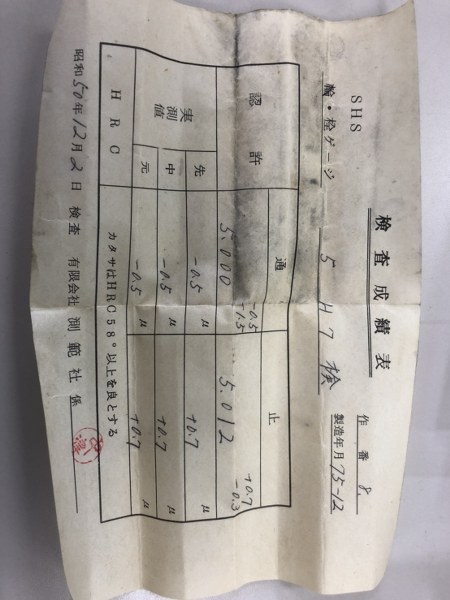 検査成績表
作番 8.
SHS
輪・栓ゲージ 5 H7 検 製造年月 75-12
通 止
認許 5.000 -0.5 -1.5 5.012 +0.7 -0.3
実測値 先 -0.5 μ +0.7 μ
中 -0.5 μ +0.7 μ
元 -0.5 μ +0.7 μ
HRC カタサはHRC58°以上を良とする
昭和50年12月2日 検査 有限会社 測範社 係